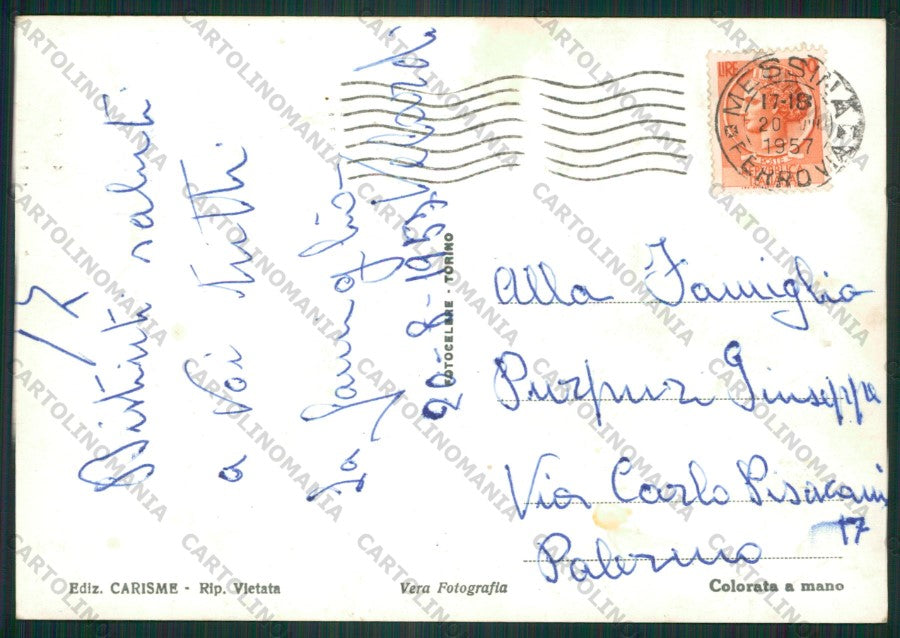 Distinti saluti
a voi tutti
la famiglia
Velardi
20-8-1957
FOTOCELERE - TORINO
LIRE
MESSINA
17-18
20
1957
FERROVIA
POSTE
Alla Famiglia
Purpura Giuseppe
Via Carlo Pisacani
17
Palermo
Ediz. CARISME - Rip. Vietata
Vera Fotografia
Colorata a mano
CARTOLINOMANIA